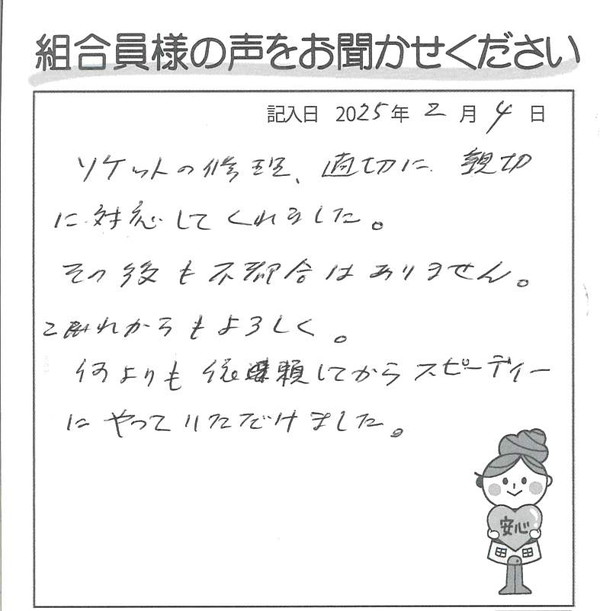 組合員様の声をお聞かせください
記入日 2025年2月4日
ソケットの修理、適切に親切
に対応してくれました。
その後も不都合はありません。
これからもよろしく。
何よりも依頼してからスピーディー
にやっていただけました。
安心